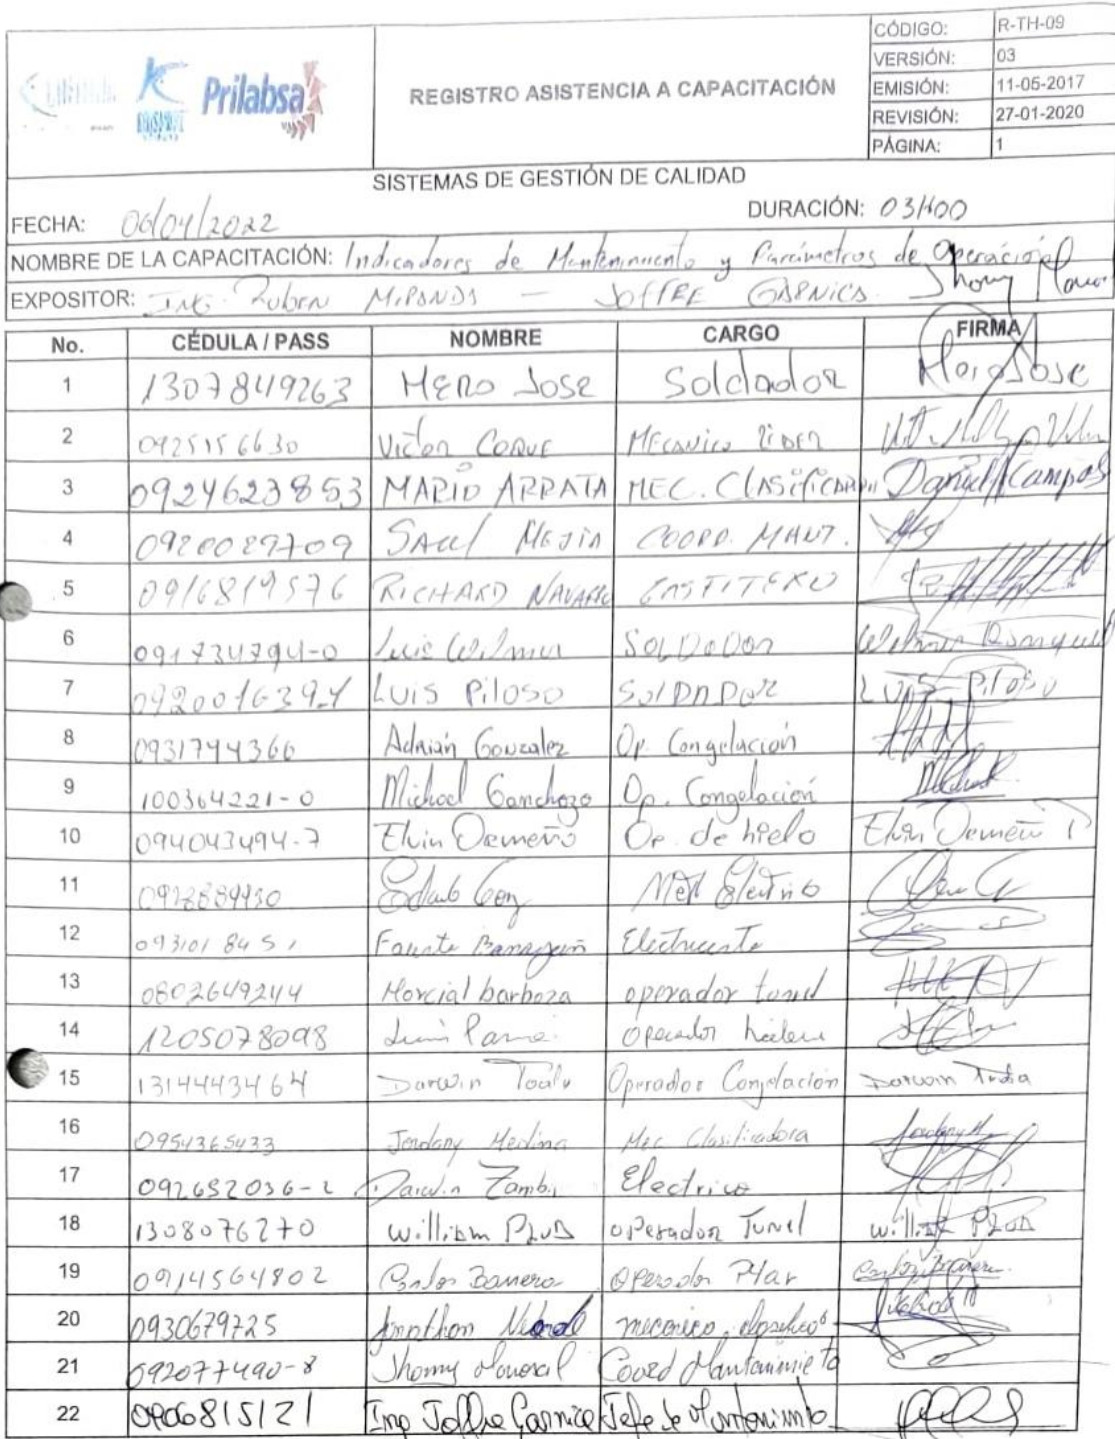 Prilabsa
REGISTRO ASISTENCIA A CAPACITACIÓN
CÓDIGO: R-TH-09
VERSIÓN: 03
EMISIÓN: 11-05-2017
REVISIÓN: 27-01-2020
PÁGINA: 1
SISTEMAS DE GESTIÓN DE CALIDAD
FECHA: 06/04/2022 DURACIÓN: 03H00
NOMBRE DE LA CAPACITACIÓN: Indicadores de Mantenimiento y Parámetros de Operacional
EXPOSITOR: ING. Ruben MIRANDA — JOFFRE GARNICA. Jhony
No. CÉDULA / PASS NOMBRE CARGO FIRMA
1 1307849263 MERO JOSE Soldador Mero Jose
2 0925156630 Victor COQUE MECANICO LIDER
3 0924623853 MARIO ARRATA MEC. CLASIFICADORA Daniel Campos
4 0920029709 SAUL MEJIA COORD. MANT.
5 0916819576 RICHARD NAVARRO
6 091734794-0 Luis Wilmer SOLDADOR Wilmer
7 092001639-1 LUIS PILOSO SOLDADOR LUIS PILOSO
8 0931794366 Adrián Gonzalez Op. Congelación
9 100364221-0 Michael Ganchozo Op. Congelación
10 094043494-7 Elvin Cemeño Op. de hielo Elvin Cemeño
11 0928889930
12 093101845 Fausto Electricista
13 0802649244 Marcial barboza operador tunel
14 1205078098 operador
15 1314443464 Darwin Toala Operador Congelación Darwin Toala
16 0954365433 Jordany Medina Mec Clasificadora Jordany M
17 092652036-2 Darwin Electrico
18 1308076270 William PLUA operador Tunel William PLUA
19 0914564802 Carlos Barrera operador
20 0930679725 mecanico
21 092077490-8 Jhonny Coord Mantenimiento
22 0906815121 Ing Joffre Garnica Jefe de Mantenimiento